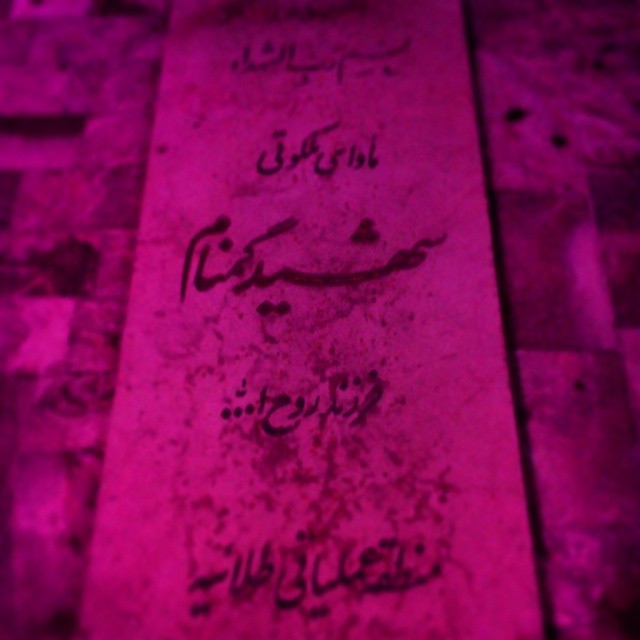 بسم رب الشهداء
ماوای ملکوتی
شهید گمنام
فرزند روح ا...
منطقه عملیاتی طلائیه